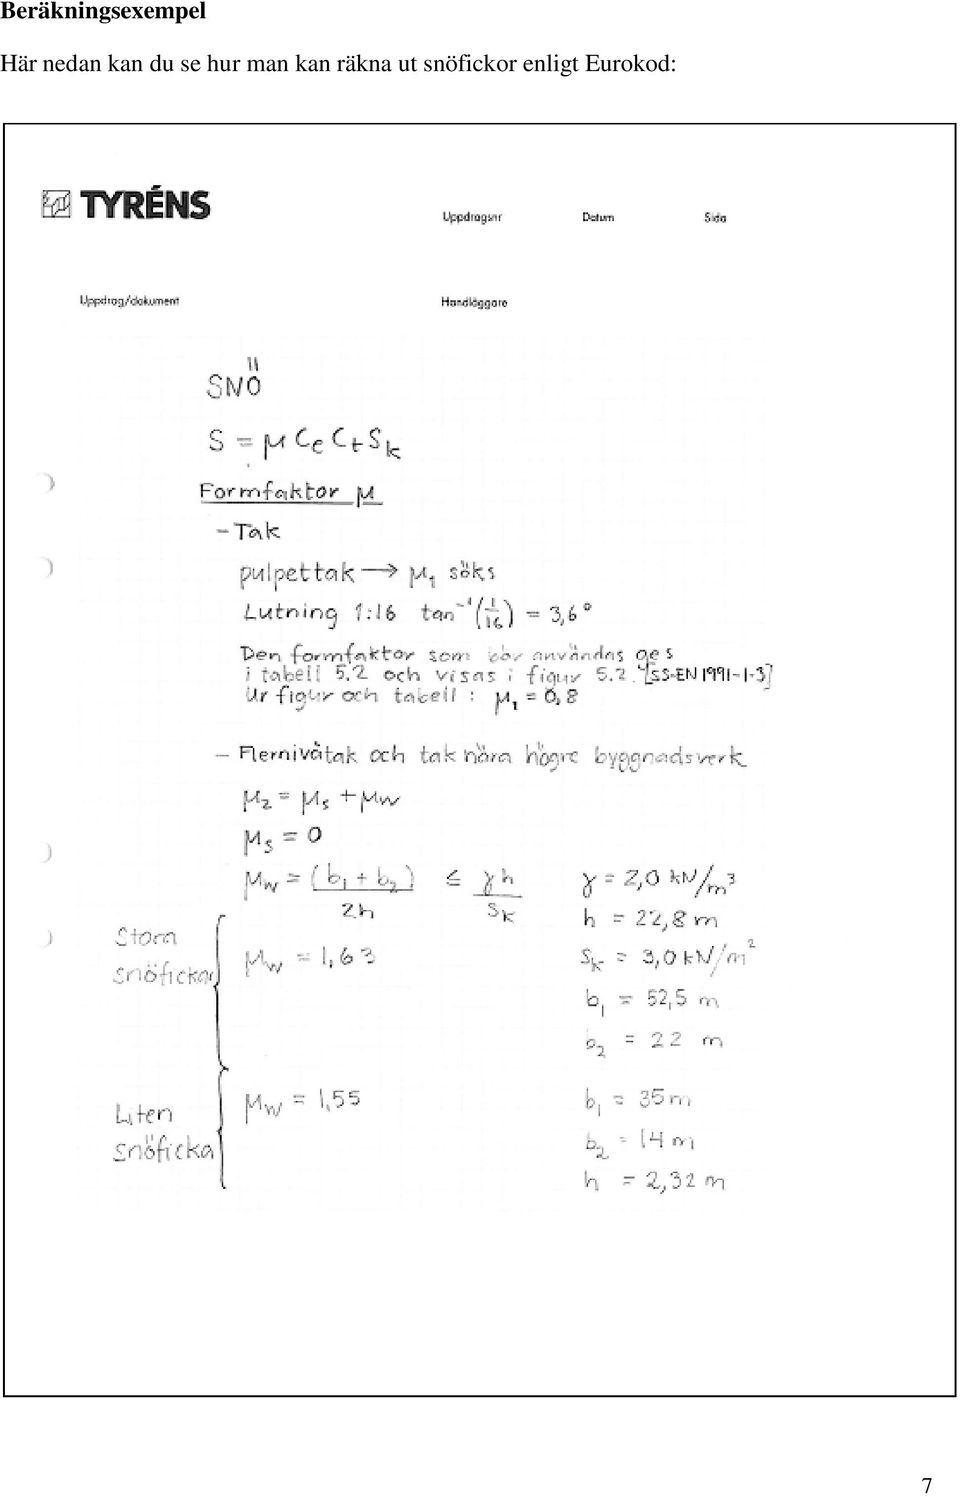 Beräkningsexempel
Här nedan kan du se hur man kan räkna ut snöfickor enligt Eurokod:
TYRÉNS
Uppdragsnr Datum Sida
Uppdrag/dokument Handläggare
SNÖ
S = μ Ce Ct Sk
Formfaktor μ
- Tak
pulpettak → μ1 söks
Lutning 1:16 tan⁻¹(1/16) = 3,6°
Den formfaktor som bör användas ges
i tabell 5.2 och visas i figur 5.2. [SS-EN 1991-1-3]
Ur figur och tabell : μ1 = 0,8
- Flernivåtak och tak nära högre byggnadsverk
μ2 = μs + μw
μs = 0
μw = (b1 + b2)/2h ≤ γh/Sk γ = 2,0 kN/m³
h = 22,8 m
Stora snöfickor μw = 1,63 Sk = 3,0 kN/m²
b1 = 52,5 m
b2 = 22 m
Liten snöficka μw = 1,55 b1 = 35 m
b2 = 14 m
h = 2,32 m
7